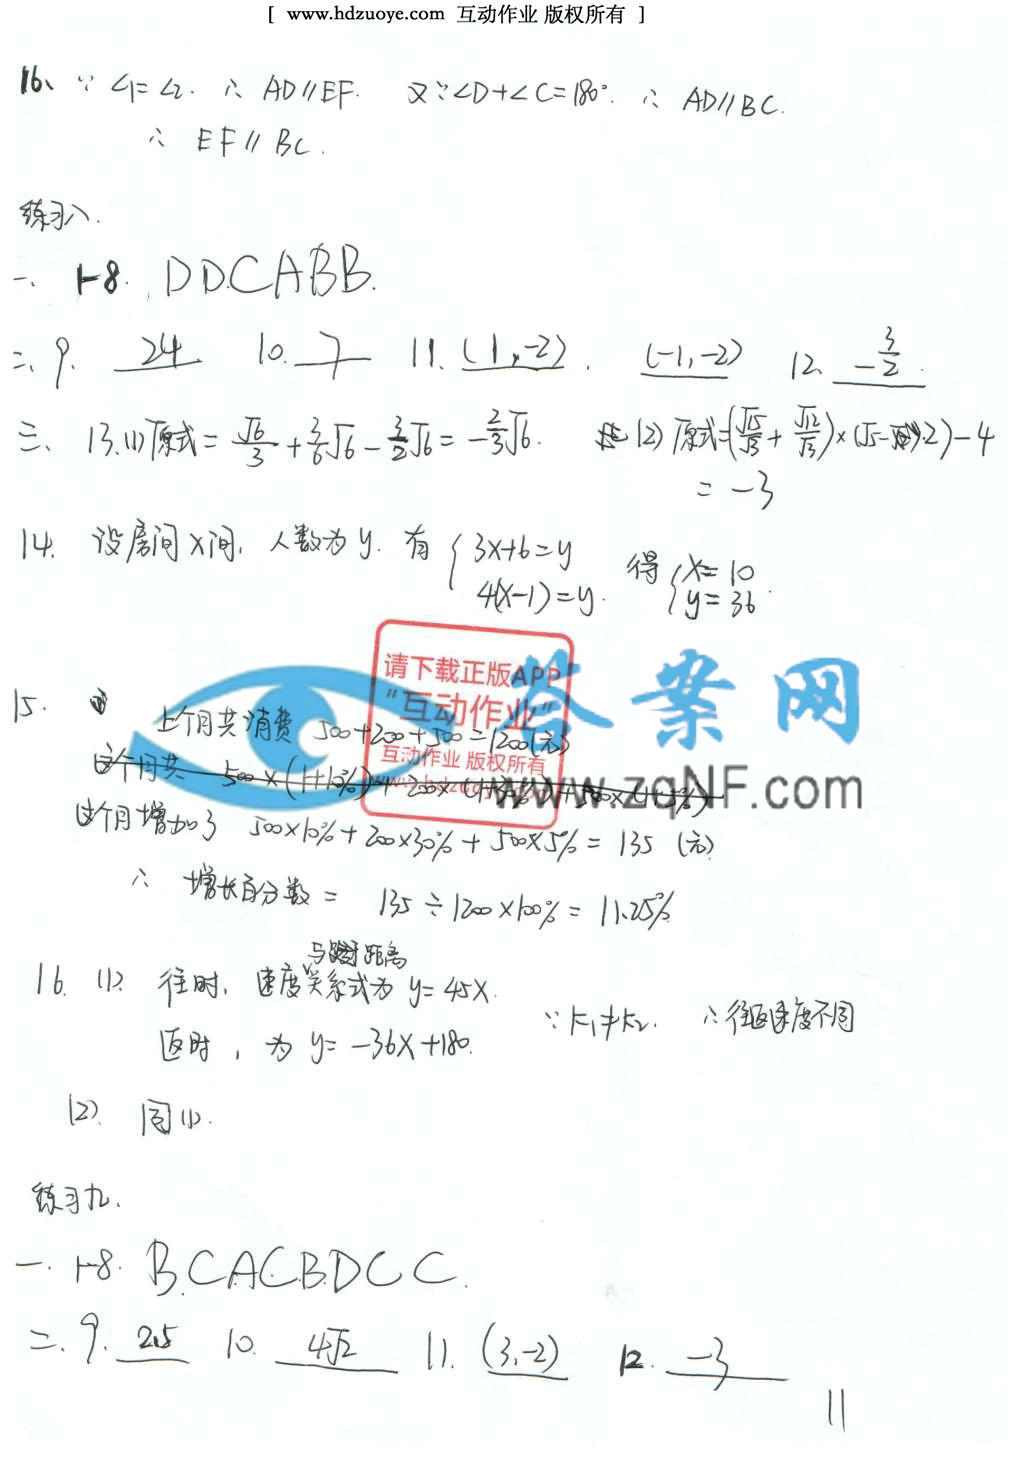 [ www.hdzuoye.com 互动作业 版权所有 ]
16、 ∵ ∠1=∠2. ∴ AD//EF. 又∵∠D+∠C=180°. ∴ AD//BC.
∴ EF//BC.
练习八.
一、 1-8. DDCABB.
二、9. 24 10. 7 11. (1,-2). (-1,-2) 12. -3/2.
三、13.(1)原式=√6/3+3/6√6-3/2√6=-2/3√6. (2)原式=(√15/√3+√12/√3)×(√5-2)-4
= -3
14. 设房间x间, 人数为y. 有 { 3x+6=y 得 { x=10
4(x-1)=y. y=36.
15. 上个月共消费 500+200+500=1200(元)
这个月共 500×(1+10%)+200×(1+30%)+500×(1+5%)
这个月增加了 500×10%+200×30%+500×5%=135 (元)
∴ 增长百分数= 135÷1200×100%=11.25%
16. (1). 往时, 速度与距离关系式为 y=45x.
返时, 为 y=-36x+180. ∵ k₁≠k₂. ∴往返速度不同
(2). 同(1).
练习九.
一. 1-8. BCACBDCC.
二. 9. 25 10. 4√2 11. (3,-2) 12. -3
11
请下载正版APP
“互动作业”
互动作业 版权所有
答案网
www.zqNF.com